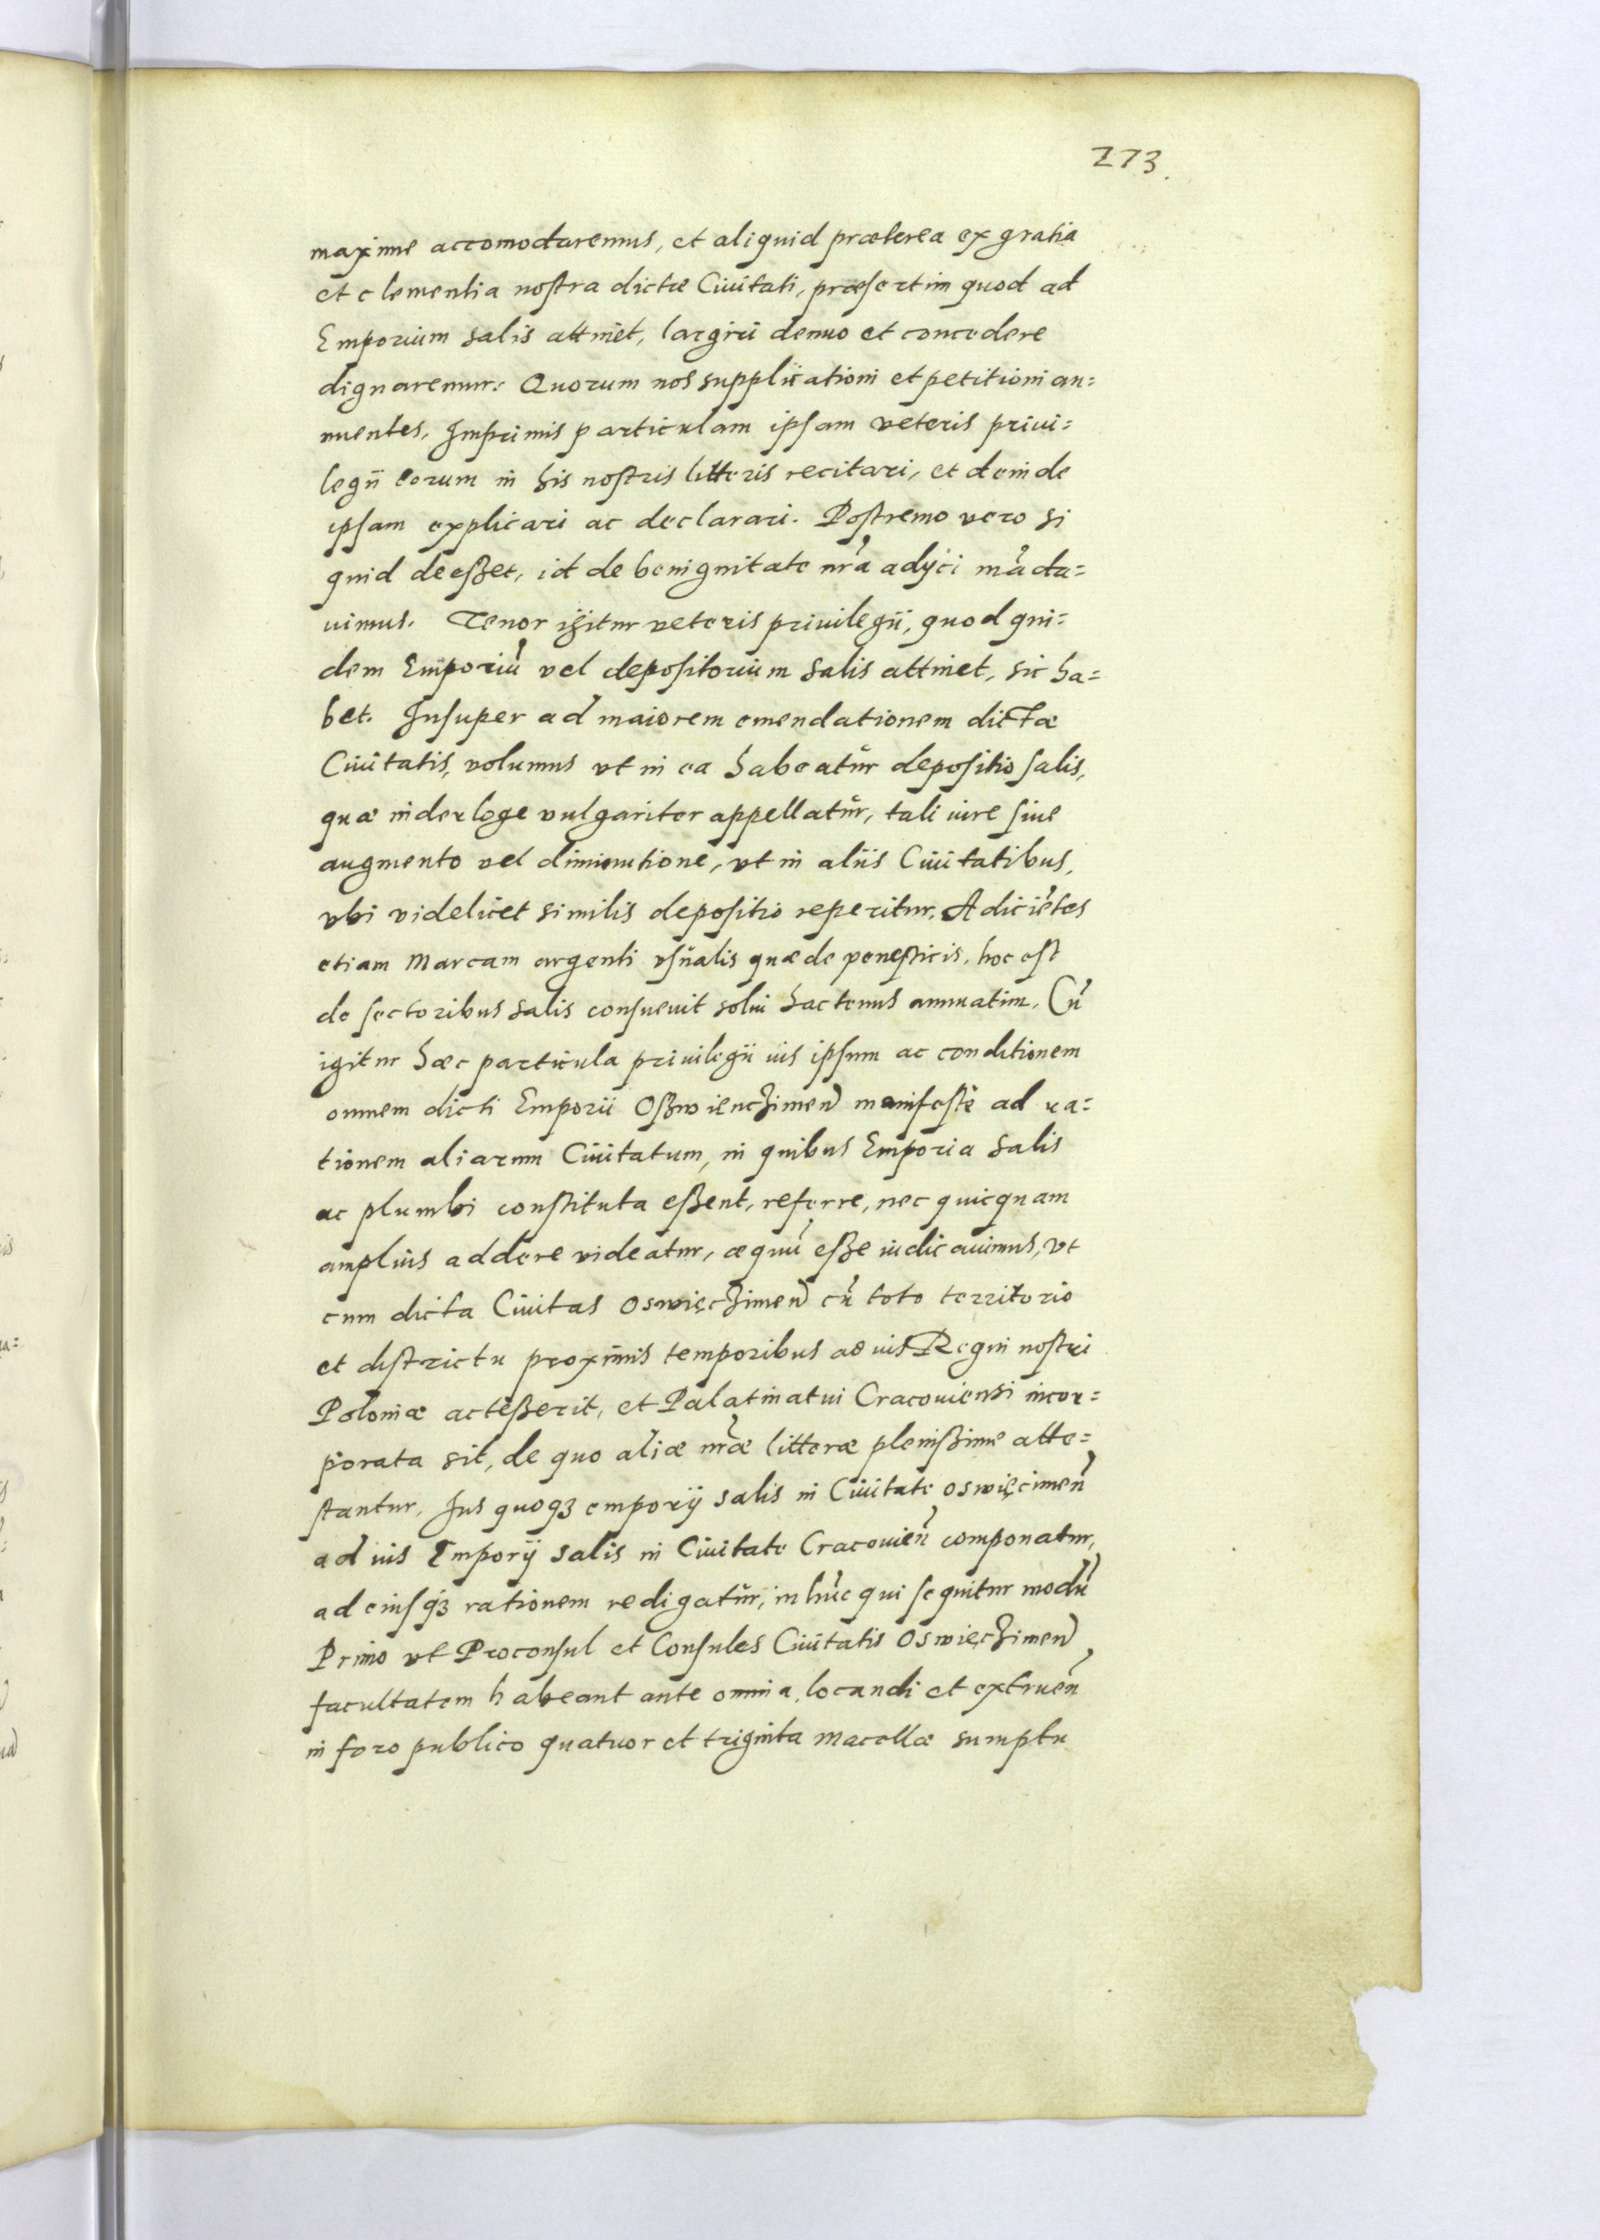 273.
maxime accomodaremus, et aliquid præterea ex gratia
et clementia nostra dictæ Ciuitati, præsertim quod ad
Emporium salis attinet, largiri denuo et concedere
dignaremur. Quorum nos supplicationi et petitioni an=
nuentes, Imprimis particulam ipsam veteris priui=
legij eorum in his nostris litteris recitari, et deinde
ipsam explicari ac declarari. Postremo vero si
quid deesset, id de benignitate nrã adijci mãda=
uimus. Tenor igitur veteris priuilegii, quod qui=
dem Emporiũ vel depositorium salis attinet, sic ha=
bet. Insuper ad maiorem emendationem dictæ
Ciuitatis, volumus vt in ea habeatur depositio salis,
quæ inderloge vulgariter appellatur, tali iure siue
augmento vel diminutione, vt in aliis Ciuitatibus,
vbi videlicet similis depositio reperitur. Adiciẽtes
etiam Marcam argenti vsualis quæ de penesticis, hoc est
de sectoribus salis consueuit solui hactenus annuatim. Cũ
igitur hæc particula priuilegii ius ipsum ac conditionem
omnem dicti Emporii Osswienczimeñ manifeste ad ra=
tionem aliarum Ciuitatum, in quibus Emporia salis
ac plumbi constituta essent, referre, nec quicquam
amplius addere videatur, æquũ esse iudicauimus, vt
cum dicta Ciuitas Oswięczimeñ cũ toto territorio
et districtu proximis temporibus ad ius Regni nostri
Poloniæ accesserit, et Palatinatui Cracouiensi incor=
porata sit, de quo aliæ nrãe litteræ plenissime atte=
stantur. Jus quoqꝫ emporij salis in Ciuitate Oswięcimeñ
ad ius Emporij salis in Ciuitate Cracouieñ componatur,
ad eiusqꝫ rationem redigatur, in hũc qui sequitur modũ
Primo vt Proconsul et Consules Ciuitatis Oswięczimeñ
facultatem habeant ante omnia, locandi et extrueñ
in foro publico quatuor et triginta macellæ sumptu